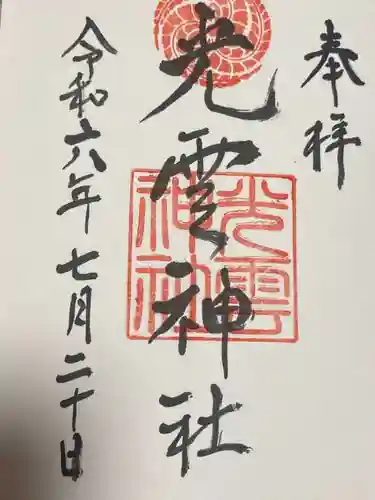 奉拝
光雲神社
光雲神社
令和六年七月二十日